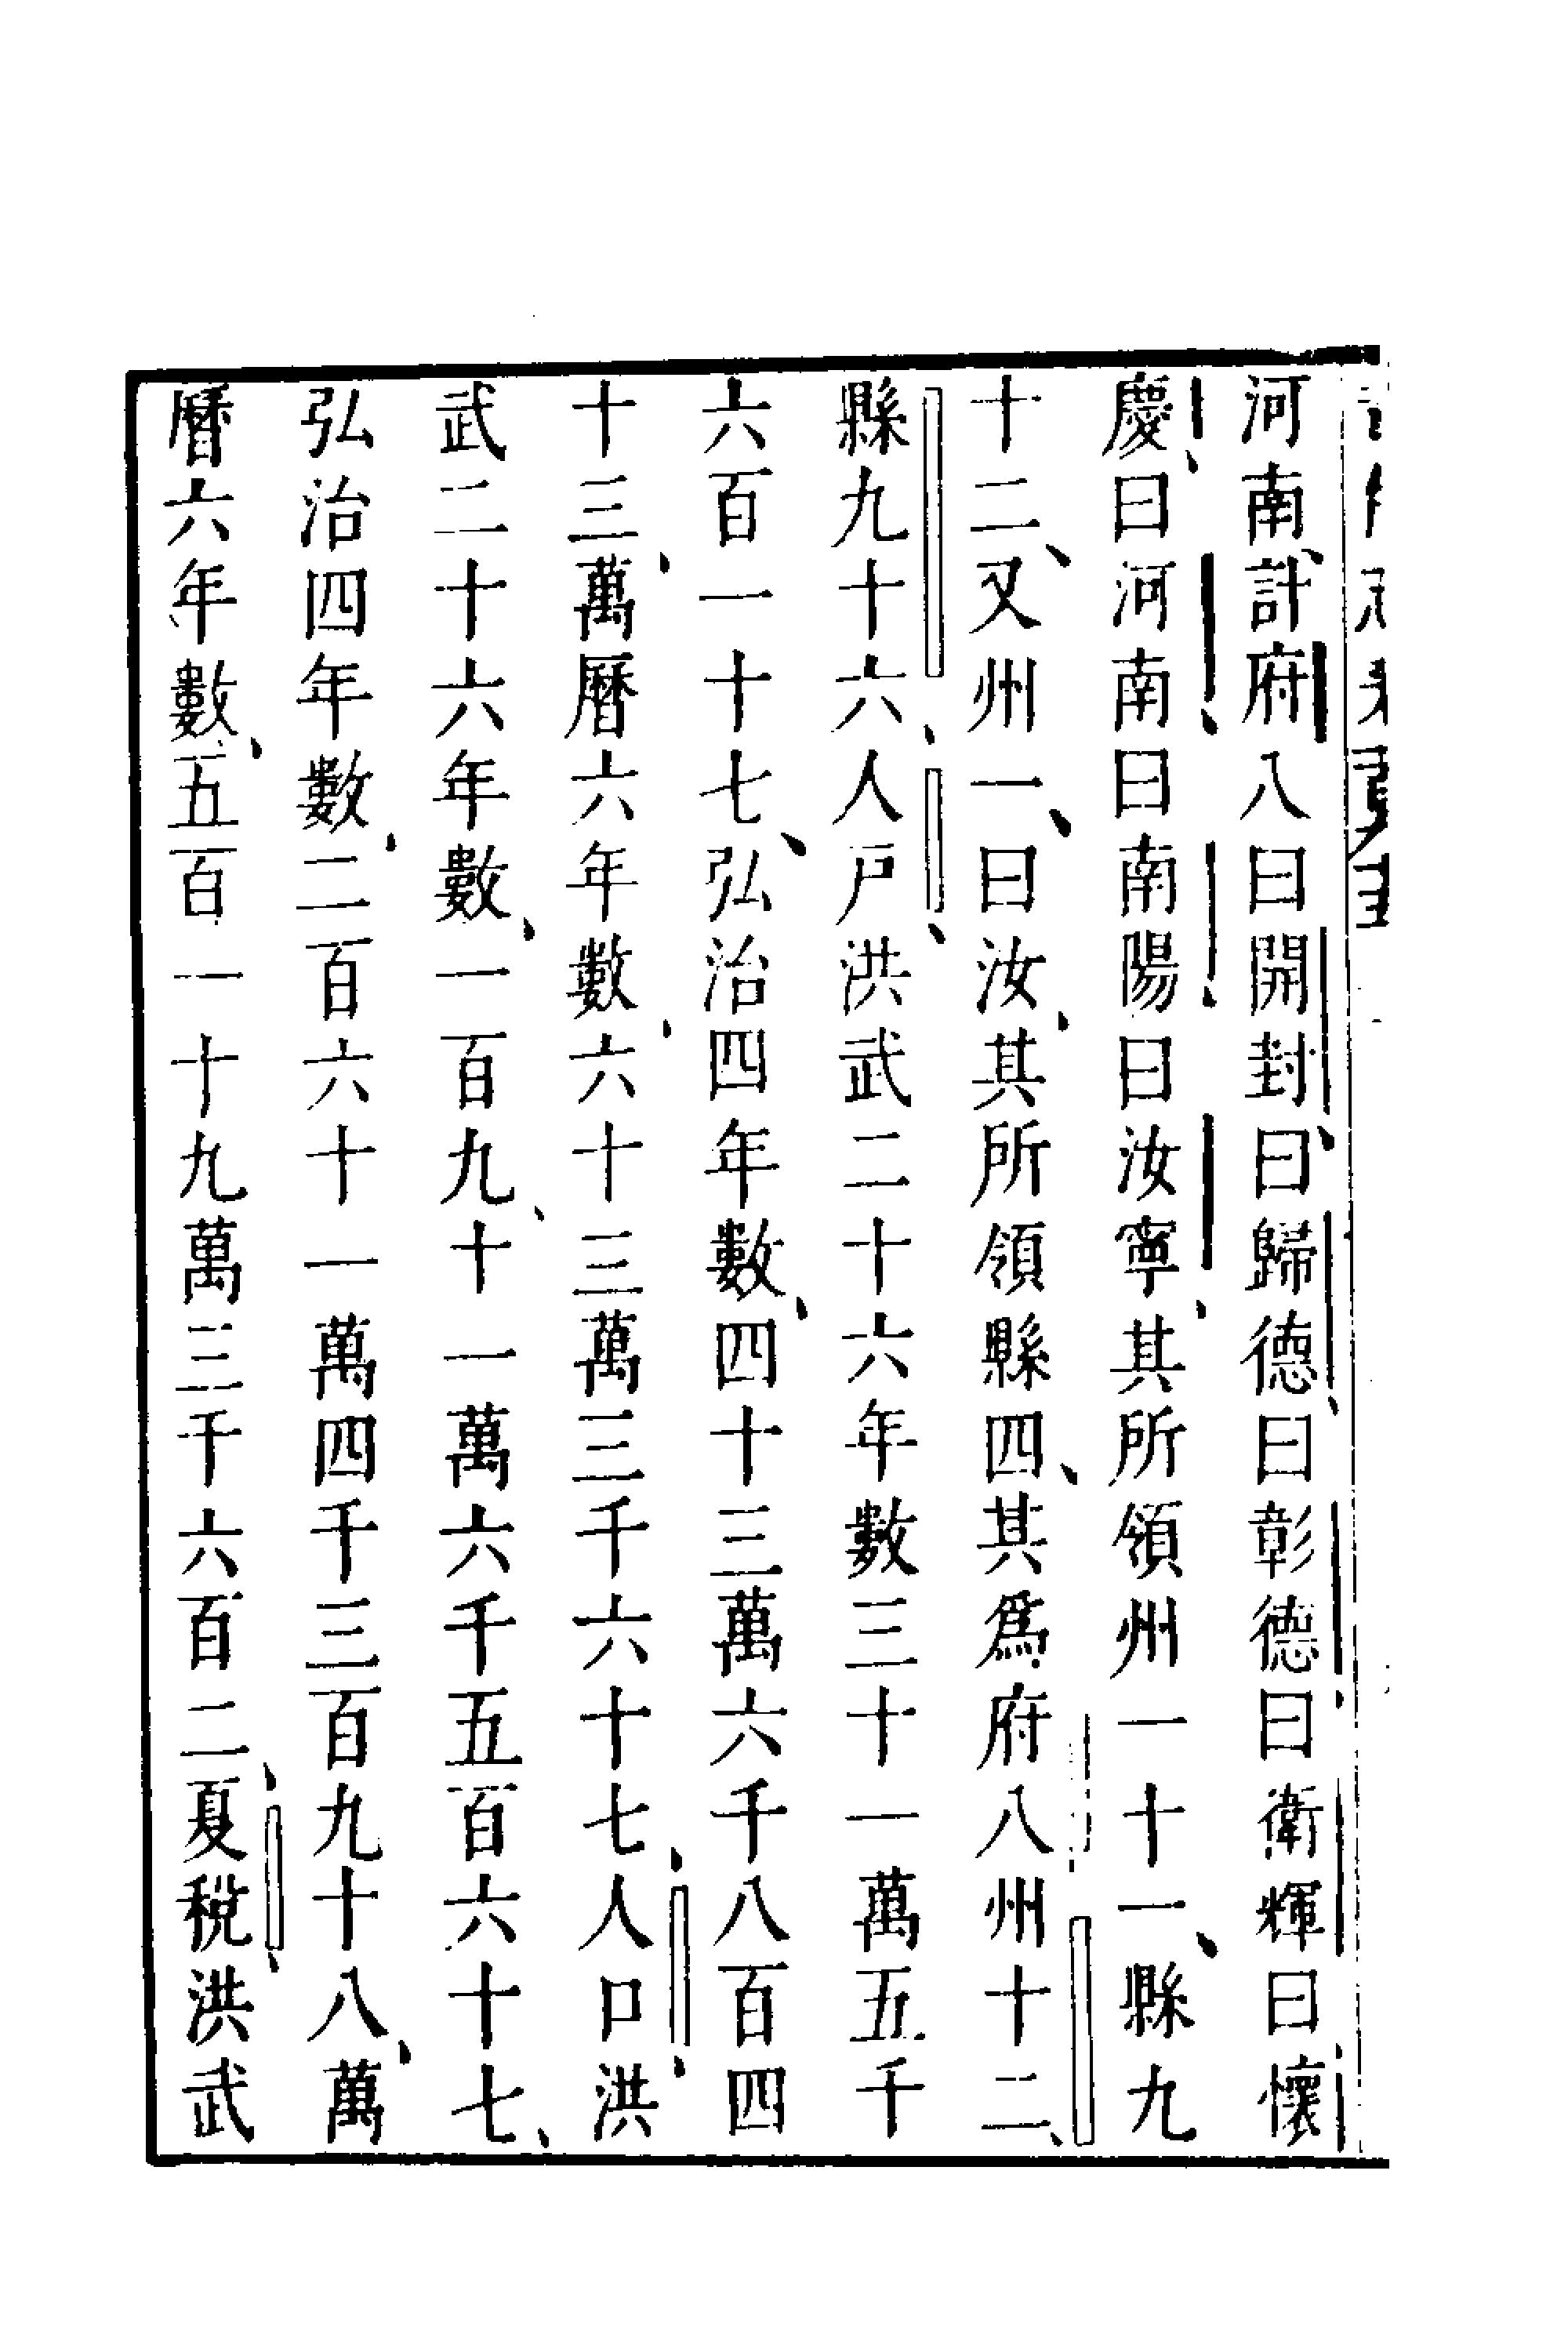 河南計府八曰開封曰歸德曰彰德曰衛輝曰懷
慶曰河南曰南陽曰汝寧其所領州一十一縣九
十二又州一曰汝其所領縣四其爲府八州十二
縣九十六人戸洪武二十六年數三十一萬五千
六百一十七弘治四年數四十三萬六千八百四
十三萬曆六年數六十三萬三千六十七人口洪
武二十六年數一百九十一萬六千五百六十七
弘治四年數二百六十一萬四千三百九十八萬
曆六年數五百一十九萬三千六百二夏稅洪武